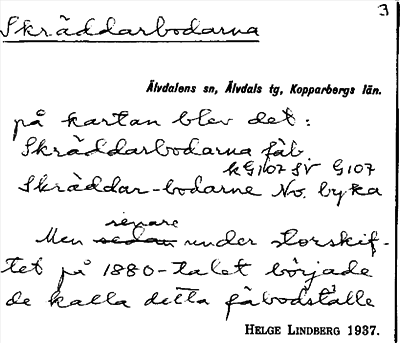 Skräddarbodarna
3
Älvdalens sn, Älvdals tg, Kopparbergs län.
på kartan blev det:
Skräddarbodarna fäb
kG107 SV G107
Skräddar-bodarne No. byka
senare
Men sedan under storskif-
tet på 1880-talet började
de kalla detta fäbodställe
HELGE LINDBERG 1937.